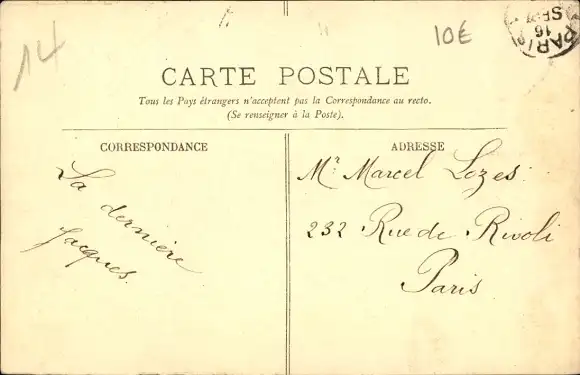 14
10€
PARIS
16
SEPT
CARTE POSTALE
Tous les Pays étrangers n'acceptent pas la Correspondance au recto.
(Se renseigner à la Poste).
CORRESPONDANCE
La dernière
Jacques.
ADRESSE
Mr Marcel Lozes
232 Rue de Rivoli
Paris